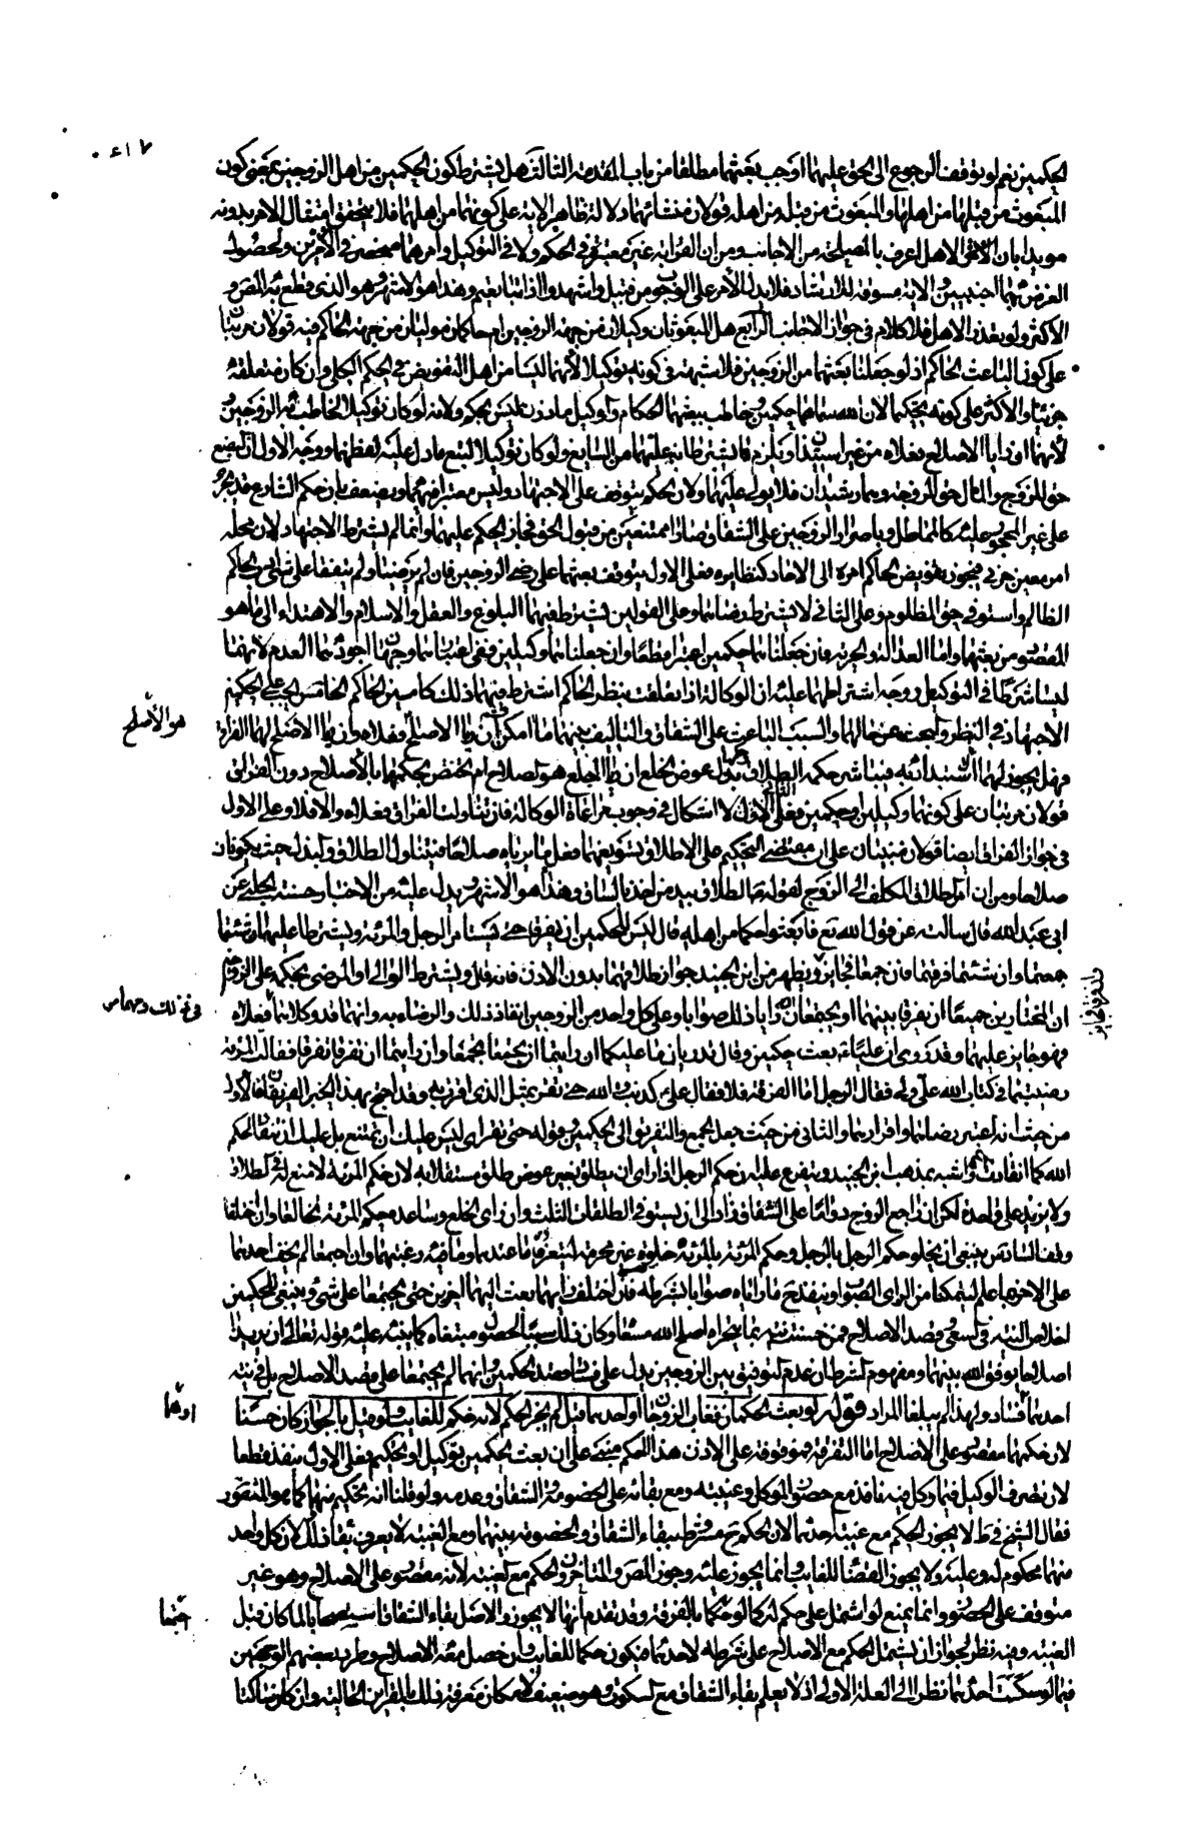 الحكمين نعم لو توقف الرجوع الى الحق عليهما وجب بعثهما مطلقا من باب المقدمة الثالث هل يشترط كون الحكمين من اهل الزوجين بمعنى كون
المبعوث من قبلها من اهلها والمبعوث من قبله من اهله قولان منشأهما دلالة ظاهر الاية على كونهما من اهلهما فلا يتحقق امتثال الامر بدونه
مويدا بان الاهل اعرف بالمصلحة من الاجانب ومن ان القرابة غير معتبرة في الحكم ولا في التوكيل وامرهما منحصر في الامرين ولحصول
الغرض بهما اجنبيين والاية مسوقة للارشاد فلا يدل الامر على الوجوب من قبيل واشهدوا اذا تبايعتم وهذا هو الاشهر وهو الذي قطع به المص و
الاكثر ولو تعذر الاهل فلا كلام في جواز الاجانب الرابع هل المبعوثان وكيلان من جهة الزوجين ام حاكمان موليان من جهة الحاكم فيه قولان مرتبان
على كون الباعث الحاكم اذ لو جعلنا بعثهما من الزوجين فلا شبهة في كونه توكيلا لانهما ليسا من اهل التفويض في الحكم الكلي وان كان متعلقه
جزئيا والاكثر على كونه تحكيما لان الله سماهما حكمين وخاطب ببعثهما الحكام والوكيل ماذون ليس بحكم ولانه لو كان توكيلا لخاطب به الزوجين و
لانهما ان رايا الاصلاح فعلاه من غير استيذان ويلزم ما يشترطانه عليهما من السايغ ولو كان توكيلا لتبع ما دل عليه لفظهما ووجه الاول ان البضع
حق للزوج والمال حق للزوجة وهما رشيدان فلا يولى عليهما ولان الحكم يتوقف على الاجتهاد وليس معتبرا فيهما ويضعف بان حكم الشارع قد يجري
على غير المحجور عليه كالمماطل وباصرار الزوجين على الشقاق صارا ممتنعين من قبول الحق فجاز الحكم عليهما وانما لم يشترط الاجتهاد لان محله
امر معين جزئي فيجوز تفويض الحاكم امره الى الاحاد كنظايره فعلى الاول يتوقف بعثهما على رضى الزوجين فان لم يرضيا ولم يتفقا على شئ ادب الحاكم
الظالم واستوفى حق المظلوم وعلى الثاني لا يشترط رضاهما وعلى القولين يشترط فيهما البلوغ والعقل والاسلام والاهتداء الى ما هو
المقصود من بعثهما واما العدالة والحرية فان جعلناهما حكمين اعتبرا قطعا وان جعلناهما وكيلين ففي اعتبارهما وجهان اجودهما العدم لانهما
ليسا شرطا في التوكيل ووجه اشتراطهما عليه ان الوكالة اذا تعلقت بنظر الحاكم اشترط فيهما ذلك كامين الحاكم الخامس يجب على الحكمين
الاجتهاد في النظر والبحث عن حالهما والسبب الباعث على الشقاق والتاليف بينهما ما امكن فان رايا الاصلاح فعلاه وان رايا الاصلح لهما الفراق
فهل يجوز لهما الاستبداد به فيباشر حكمه الطلاق وبذل عوض الخلع ان رايا الخلع هو الصلاح ام يختص تحكيمهما بالاصلاح دون الفراق
قولان مرتبان على كونهما وكيلين او حكمين فعلى الاول لا اشكال في وجوب مراعاة الوكالة فان تناولت الفراق فعلاه والا فلا وعلى الاول الثاني
في جواز الفراق ايضا قولان مبنيان على ان مقتضى التحكيم على الاطلاق تسويغهما فعل ما يريانه صلاحا فيتناول الطلاق والبذل حيث يكونان
صلاحا ومن ان امر الطلاق المكلف الى الزوج لقوله الطلاق بيد من اخذ بالساق وهذا هو الاشهر ويدل عليه من الاخبار حسنة الحلبي عن
ابي عبد الله قال سالته عن قول الله تع فابعثوا حكما من اهله قال ليس للحكمين ان يفرقا حتى يستامرا الرجل والمرئة ويشترطا عليهما ان شئنا
جمعنا وان شئنا فرقنا فان جمعا فجايز ويظهر من ابن الجنيد جواز طلاقهما بدون الاذن فانه قال ويشترط الوالي او المرضي بحكمه على الزوجين
ان للمختارين جميعا ان يفرقا بينهما او يجمعان ان رايا ذلك صوابا وعلى كل واحد من الزوجين انفاذ ذلك والرضا به وانهما قد وكلاهما فعلاه
فهو جايز عليهما وقد روى ان عليا ع بعث حكمين وقال تدريان ما عليكما ان رايتما ان يجتمعا جمعتما وان رايتما ان تفرقا تفرقا فقالت المرئة
رضيت بما في كتاب الله علي ولي فقال الرجل اما الفرقة فلا فقال علي كذبت والله حتى تقر بمثل الذي اقرت به وقد احتج بهذا الخبر الفريقان فالاول
من حيث انه اعتبر رضاهما واقرارهما والثاني من حيث جعل الجمع والتفريق الى الحكمين وقوله حتى تقر اي ليس عليك ان تمتنع بل عليك انقياد لحكم
الله كما انقادت واشبه بمذهب ابن الجنيد ويتفرع عليه ان حكم الرجل اذا راى ان يطلق بغير عوض طلق مستقلا به لان حكم المرئة لا صنع له في الطلاق
ولا يزيد على واحدة لكن ان راجع الزوج ودام على الشقاق زاد الى ان يستوفي الطلقات الثلث وان راى الخلع وساعده حكم المرئة تخالعا وان اختلفا
وقف السادس ينبغي ان يخلو حكم الرجل بالرجل وحكم المرئة بالمرئة خلوة غير محرمة ليتعرفا ما عندهما وما فيه رغبتهما وان اجتمعا لم يخف احدهما
على الاخر ما علم ليتمكنا من الراي الصواب وينفذ ما راياه صوابا بشرطه فان اختلف رايهما بعث اليهما اخرين حتى يجتمعا على شئ وينبغي للحكمين
اخلاص النية في السعي وقصد الاصلاح فمن حسنت نيته فيما يتحراه اصلح الله مسعاه وكان ذلك سببا لحصول مبتغاه كما ينبه عليه قوله تعالى ان يريدا
اصلاحا يوفق الله بينهما ومفهوم الشرط ان عدم التوفيق بين الزوجين يدل على فساد قصد الحكمين وانهما لم يجتمعا على قصد الاصلاح بل في نية
احدهما فساد ولهذا لم يبلغا المراد قوله لو بعث الحكمان فغاب الزوجان او احدهما قيل لم يجز الحكم لانه حكم للغايب ولو قيل بالجواز كان حسنا
لان حكمهما مقصور على الاصلاح اما التفرقة فموقوفة على الاذن هذا الحكم مبني على ان بعث الحكمين توكيل او تحكيم فعلى الاول ينفذ قطعا
لان تصرف الوكيل فيما وكل فيه نافذ مع حضور الموكل وغيبته ومع بقائه على الخصومة والشقاق وعدمه ولو قلنا انه تحكيم منهما كما هو المنصور
فقال الشيخ في ط لا يجوز الحكم مع غيبة احدهما لان الحكم ح مشروط ببقاء الشقاق والخصومة بينهما ومع الغيبة لا يعرف بقاء ذلك ولان كل واحد
منهما محكوم له وعليه ولا يجوز القضاء للغايب وانما يجوز عليه وجوز المص والمتاخرون الحكم مع الغيبة لانه مقصور على الاصلاح وهو غير
متوقف على الحضور وانما يمنع لو اشتمل على حكم له كما لو حكما بالفرقة وقد تقدم انها لا يجوز والاصل بقاء الشقاق استصحابا لما كان قبل
الغيبة وفيه نظر لجواز ان يشتمل الحكم مع الاصلاح على شرط له لاحدهما فيكون حكما للغايب وان حصل معه الاصلاح وطرد بعضهم الوجهين
فيما لو سكت احدهما نظرا الى العلة الاولى اذ لا يعلم بقاء الشقاق مع السكوت وهو ضعيف لامكان معرفة ذلك بالقراين الحالية وان كان ساكتا
هو الاصلح
وان فرقا فجايز
اوهما